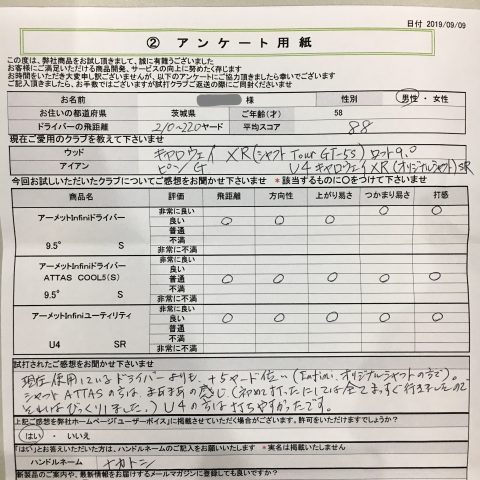 日付 2019/09/09
② アンケート用紙
この度は、弊社商品をお試し頂きまして、誠に有難うございました
お客様にご満足いただける商品開発、サービスの向上に努めたく存じます
お時間をいただき大変申し訳ございませんが、以下のアンケートにご協力頂きましたら幸いでございます
ご記入頂きましたら、お手数ではございますが試打クラブご返却の際にご同封くださいませ
お名前 様 性別 男性 ・ 女性
お住いの都道府県 茨城県 ご年齢(才) 58
ドライバーの飛距離 210~220ヤード 平均スコア 88
現在ご愛用のクラブを教えて下さいませ
ウッド キャロウェイ XR(シャフト Tour GT-55) ロフト9.0
アイアン ピン G U4 キャロウェイXR(オリジナルシャフト)SR
今回お試しいただいたクラブについてご感想をお聞かせ下さいませ *該当するものに〇をつけて下さいませ
商品名 評価 飛距離 方向性 上がり易さ つかまり易さ 打感
アーメットInfiniドライバー
9.5° S
非常に良い 〇 〇
良い 〇 〇 〇
普通
不満
非常に不満
アーメットInfiniドライバー
ATTAS COOL5(S)
9.5° S
非常に良い
良い
普通 〇 〇 〇 〇 〇
不満
非常に不満
アーメットInfiniユーティリティ
U4 SR
非常に良い
良い 〇 〇 〇 〇 〇
普通
不満
非常に不満
試打されたご感想をお聞かせ下さいませ
現在使用しているドライバーよりも、+5ヤード位い(Infini オリジナルシャフトの方で)。
シャフトATTASの方は、まあまあの感じ(初めて打ったにしては全てまっすぐ行きましたので
それはびっくりしました。) U4の方は打ちやすかったです。
上記ご感想を弊社ホームページ「ユーザーボイス」に掲載させていただく場合がございます。許可をいただけますでしょうか?
はい ・ いいえ
「はい」とお答えいただいた方は、ハンドルネームのご記入をお願いいたします *実名は掲載いたしません
ハンドルネーム ナカトシ
新製品のご案内や、最新情報をお届けするメールマガジンに登録しても良いですか?